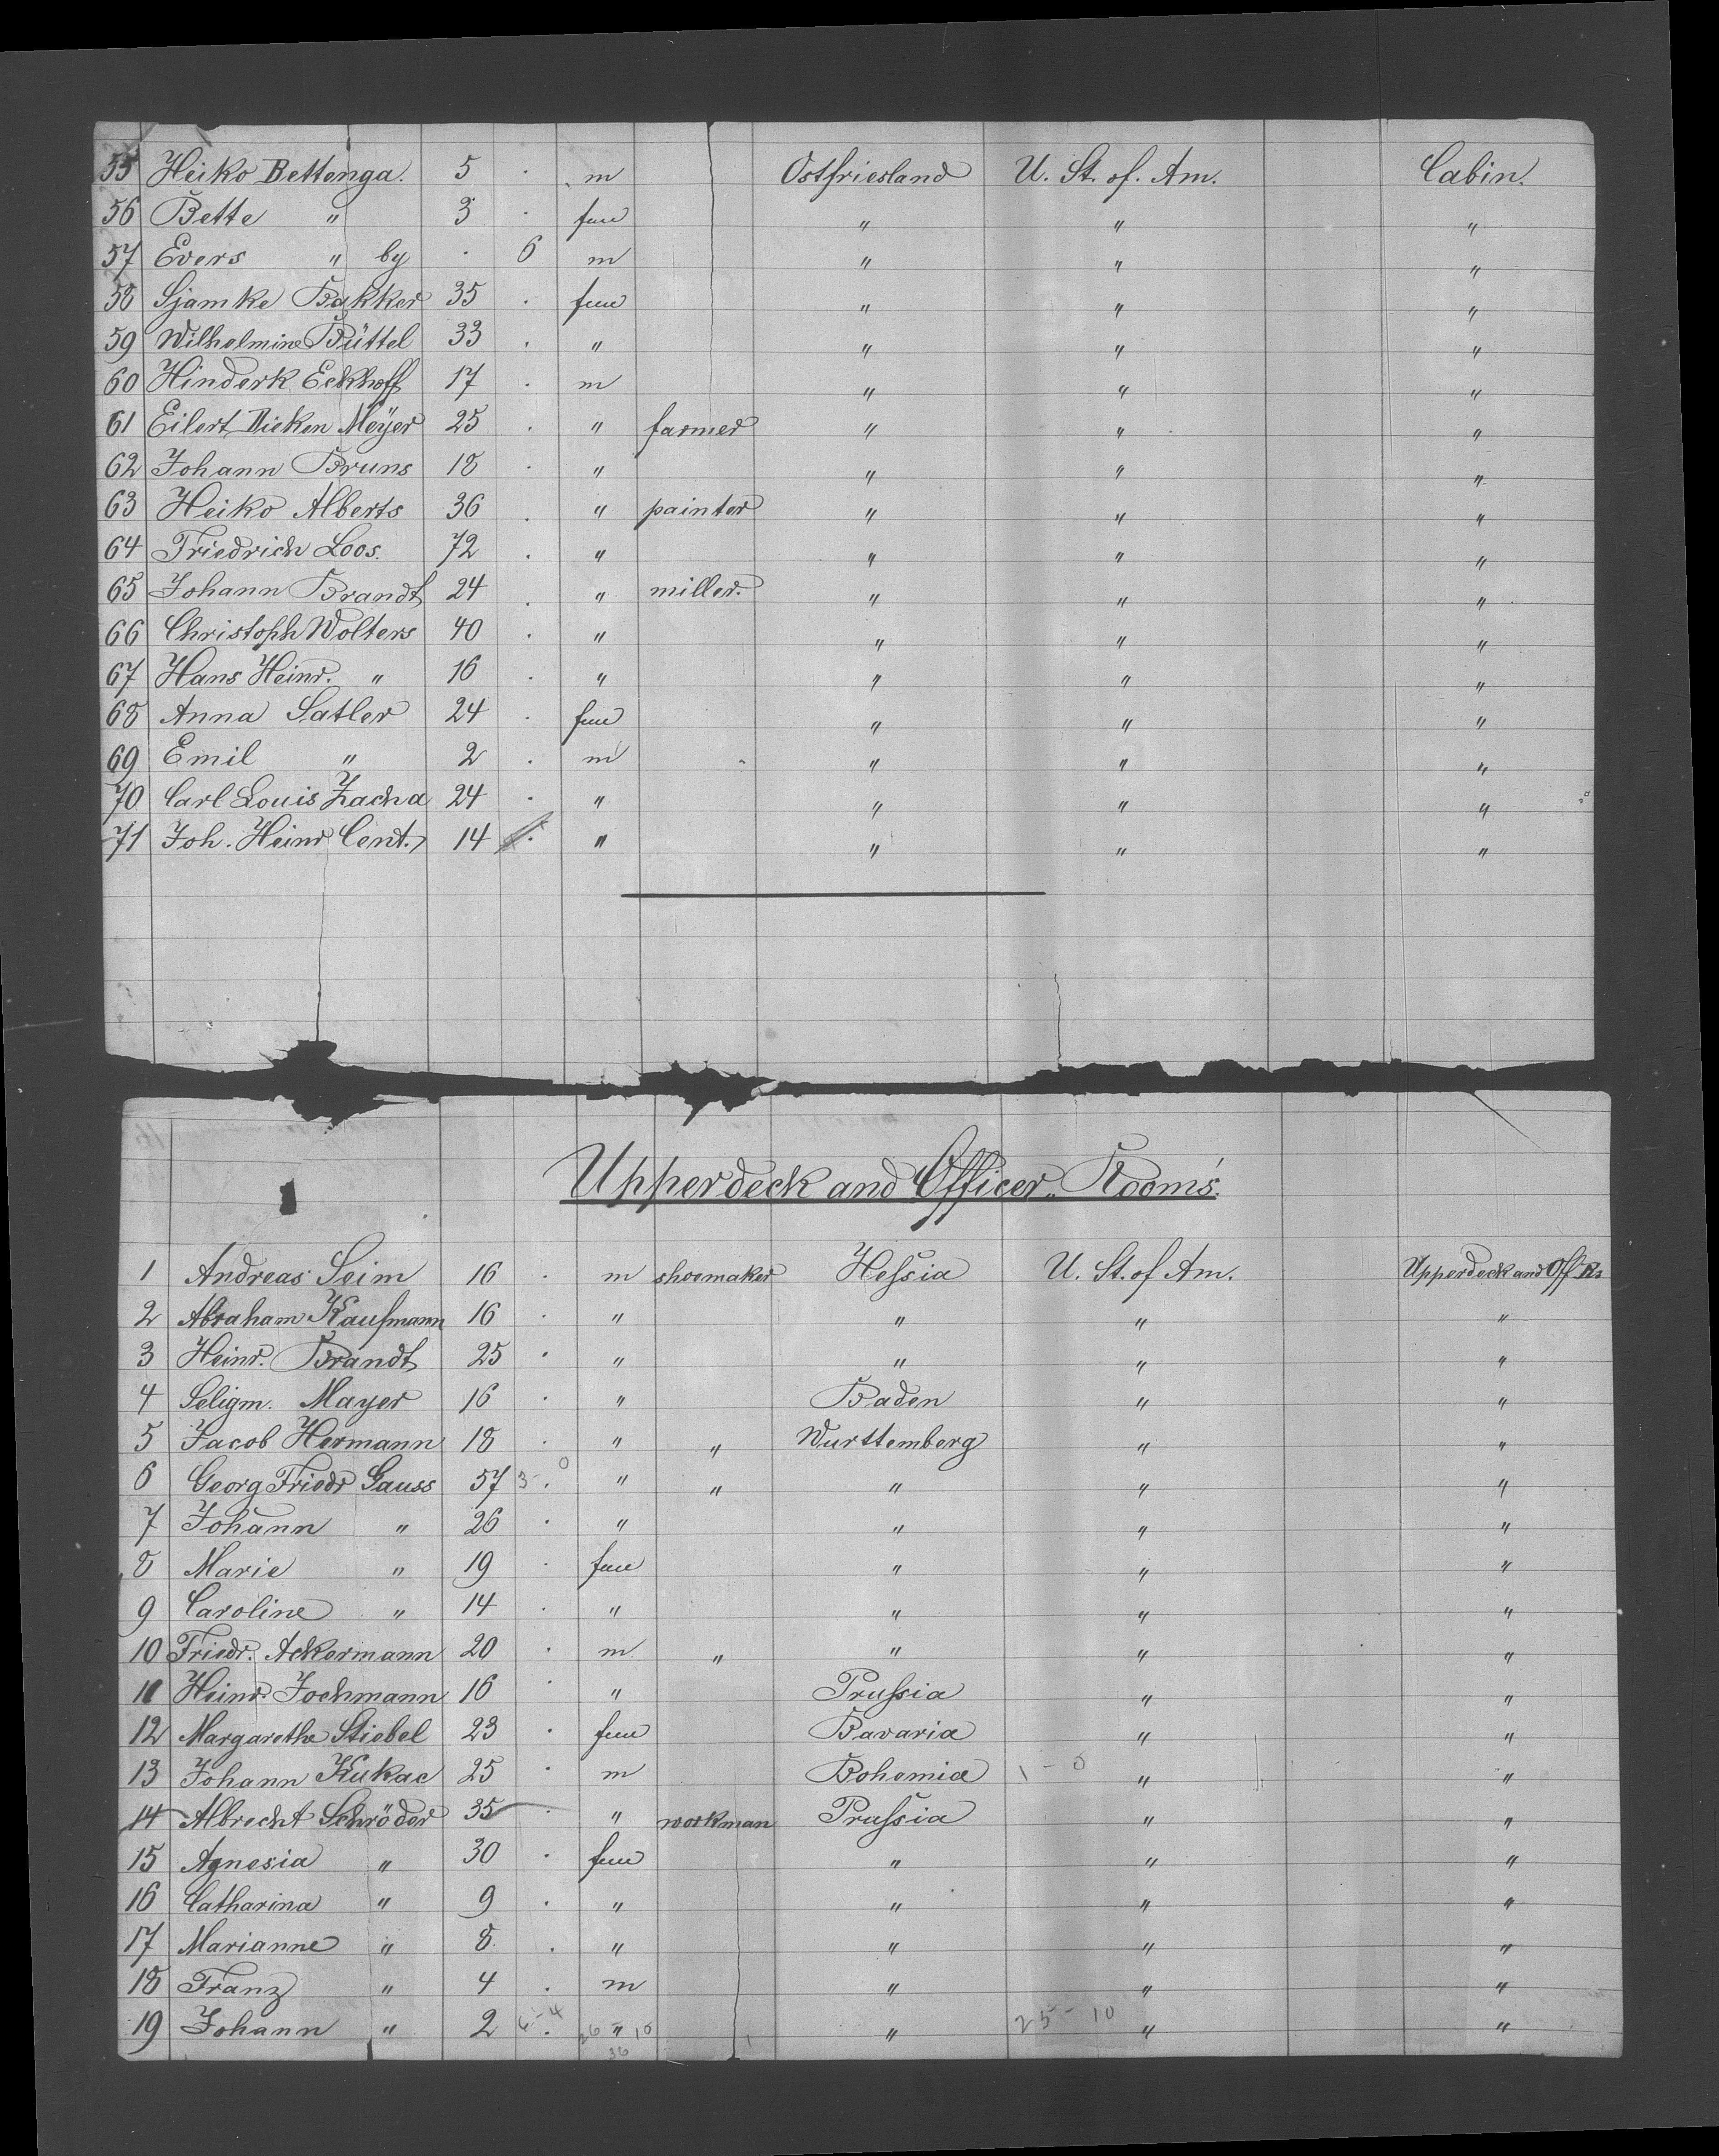 55 Heiko Bettenga. 5 . m Ostfriesland U. St. of. Am. Cabin.
56 Bette " 3 . fem " " "
57 Evers " by . 6 m " " "
58 Sjamke Bakker 35 . fem " " "
59 Wilhelmine Büttel 33 . " " " "
60 Hinderk Eckhoff 17 . m " " "
61 Eilert Dieken Meÿer 25 . " farmer " " "
62 Johann Bruns 18 . " " " "
63 Heiko Alberts 36 . " painter " " "
64 Friedrich Loos. 72 . " " " "
65 Johann Brandt 24 . " miller. " " "
66 Christoph Wolters 40 . " " " "
67 Hans Heinr. " 16 . " " " "
68 Anna Satler 24 . fem " " "
69 Emil " 2 . m " " "
70 Carl Louis Zacha 24 . " " " "
71 Joh. Heinr Cent. 14 . " " " "
Upperdeck and Officer Rooms.
1 Andreas Seim 16 . m shoemaker Heſsia U. St. of Am. Upperdeck and Off Rs
2 Abraham Kaufmann 16 . " " " "
3 Heinr. Brandt 25 . " " " "
4 Seligm. Mayer 16 . " Baden " "
5 Jacob Hermann 18 . " " Wurttemberg " "
6 Georg Friedr Gauss 57 3-0 . " " " " "
7 Johann " 26 . " " " "
8 Marie " 19 . fem " " "
9 Caroline " 14 . " " " "
10 Friedr. Ackermann 20 . m " " " "
11 Heinr. Jochmann 16 . " Pruſsia " "
12 Margarethe Stiebel 23 . fem Bavaria " "
13 Johann Kukac 25 . m Bohemia 1-0 " "
14 Albrecht Schröder 35 . " workman Pruſsia " "
15 Agnesia " 30 . fem " " "
16 Catharina " 9 . " " " "
17 Marianne " 8. . " " " "
18 Franz " 4 . m " " "
19 Johann " 2 6-4 . 26 " 10 " 25-10 " "
36